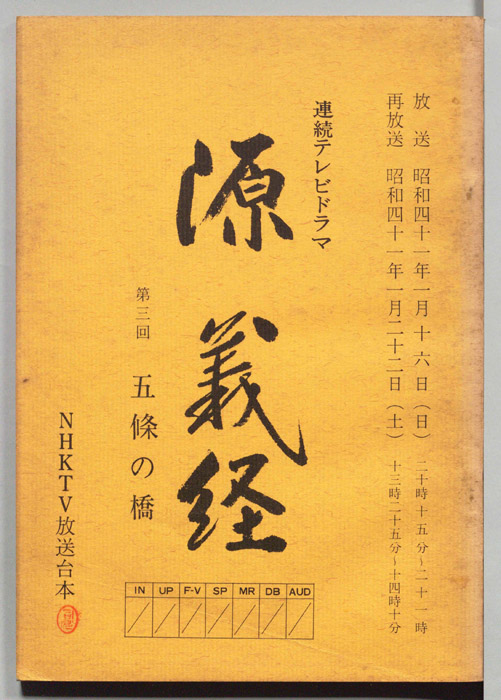 放送 昭和四十一年一月十六日（日） 二十時十五分～二十一時
再放送 昭和四十一年一月二十二日（土） 十三時二十五分～十四時十分
連続テレビドラマ
源義経
第三回 五條の橋
NHKTV放送台本
IN UP F-V SP MR DB AUD